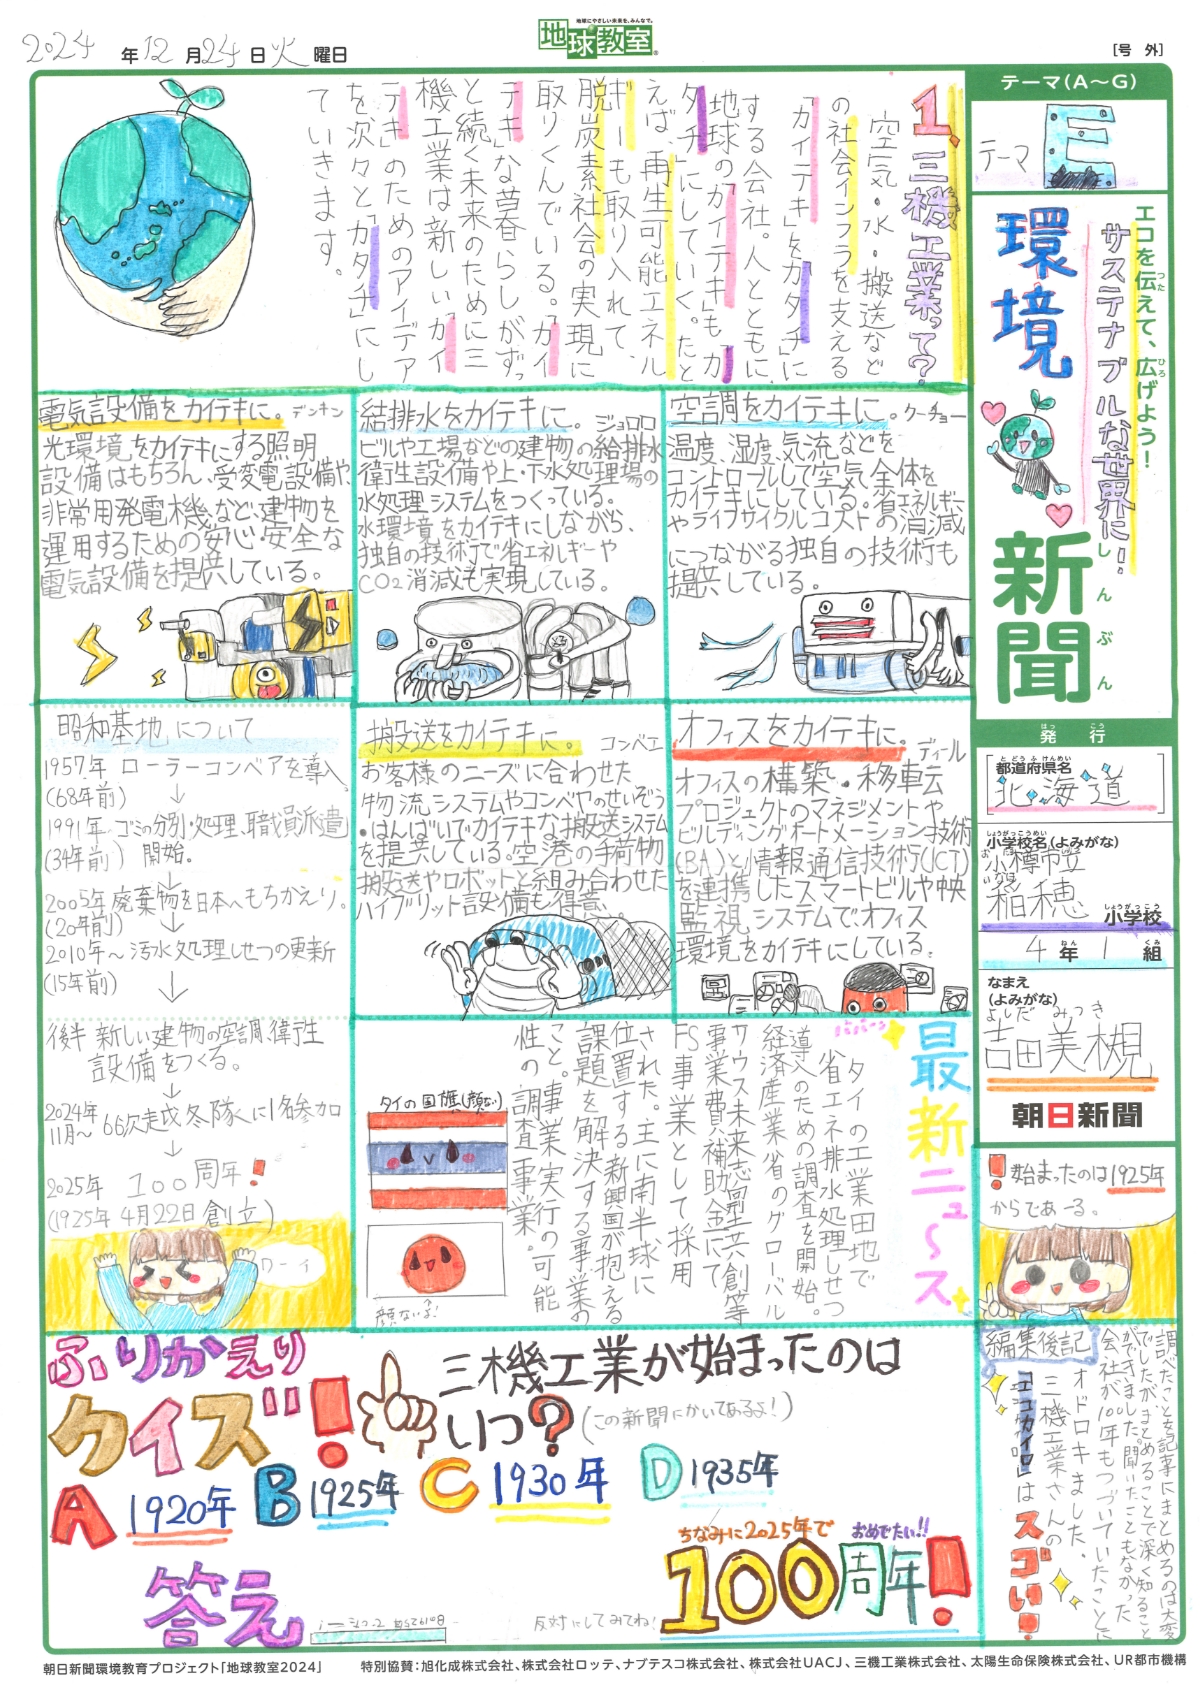 2024年12月24日火曜日
地球にやさしい未来を、みんなで。
地球教室
[号外]
テーマ(A～G)
テーマ E
エコを伝えて、広げよう!
サステナブルな世界に…
環境
新聞
しんぶん
発行
[都道府県名]
北海道
小学校名(よみがな)
小樽市立
稲穂
小学校
4年1組
なまえ
(よみがな)
よしだ みつき
吉田美槻
朝日新聞
1、三機工業って?
空気・水・搬送など
の社会インフラを支える
「カイテキ」をカタチに
する会社。人とともに、
地球の「カイテキ」も「カ
タチ」にしていく。たと
えば、再生可能エネル
ギーも取り入れて、
脱炭素社会の実現に
取りくんでいる。「カイ
テキ」な暮らしがずっ
と続く未来のために三
機工業は新しい「カイ
テキ」のためのアイデア
を次々と「カタチ」にし
ていきます。
空調をカイテキに。クーチョー
温度、湿度、気流などを
コントロールして空気全体を
カイテキにしている。省エネルギー
やライフサイクルコストの消減
につながる独自の技術も
提供している。
結排水をカイテキに。ジョロロ
ビルや工場などの建物の給排水
衛生設備や上・下水処理場の
水処理システムをつくっている。
水環境をカイテキにしながら、
独自の技術で省エネルギーや
CO2消減も実現している。
電気設備をカイテキに。デンキン
光環境をカイテキにする照明
設備はもちろん、受変電設備や、
非常用発電機など、建物を
運用するための安心・安全な
電気設備を提供している。
オフィスをカイテキに。ディール
オフィスの構築・移転
プロジェクトのマネジメントや
ビルディングオートメーション技術
(BA)と情報通信技術(ICT)
を連携したスマートビルや中央
監視システムでオフィス
環境をカイテキにしている。
搬送をカイテキに。コンベエ
お客様のニーズに合わせた
物流システムやコンベヤのせいぞう
・はんばいでカイテキな搬送システム
を提供している。空港の手荷物
搬送やロボットと組み合わせた
ハイブリット設備も得意。
昭和基地について
1957年 ローラーコンベアを導入
(68年前) ↓
1991年 ゴミの分別・処理、職員派遣
(34年前) 開始。
↓
2005年 廃棄物を日本へもちかえり。
(20年前) ↓
2010年～汚水処理しせつの更新
(15年前) ↓
後半 新しい建物の空調、衛生
設備をつくる。
↓
2024年
11月～ 66次越冬隊に1名参加
↓
2025年 100周年!
(1925年4月22日創立)
ワーイ
最新ニュ～ス
タイの工業団地で
省エネ排水処理しせつ
導入のための調査を開始。
経済産業省のグローバル
サウス未来志向型共創等
事業費補助金にて
FS事業として採用
された。主に南半球に
位置する新興国が抱える
課題を解決する事業の
こと。事業実行の可能
性の調査事業。
タイの国旗(顔ない)
顔ないよ!
!始まったのは1925年
からであーる。
編集後記
調べたことを記事にまとめるのは大変
でしたが、まとめることで深く知ること
ができました。聞いたこともなかった
会社が100年もつづいていたことに
オドロキました、
三機工業さんの
「エコカイロ」は
スゴい!
ふりかえり
クイズ!
三機工業が始まったのは
いつ?(この新聞にかいてあるよ!)
A 1920年 B 1925年 C 1930年 D 1935年
ちなみに2025年で おめでたい!!
100周年!
答え
反対にしてみてね!
朝日新聞環境教育プロジェクト「地球教室2024」
特別協賛:旭化成株式会社、株式会社ロッテ、ナブテスコ株式会社、株式会社UACJ、三機工業株式会社、太陽生命保険株式会社、UR都市機構